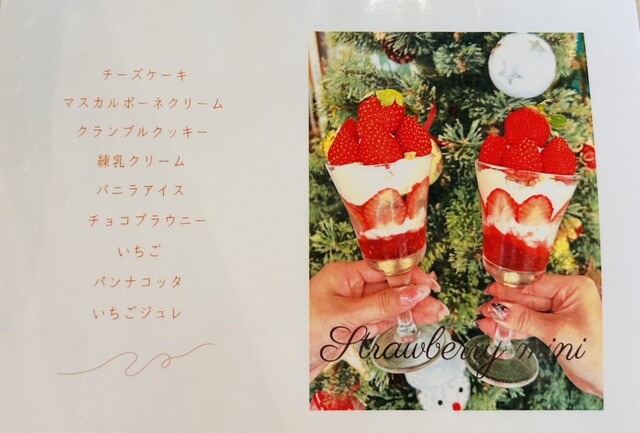 チーズケーキ
マスカルポーネクリーム
クランブルクッキー
練乳クリーム
バニラアイス
チョコブラウニー
いちご
パンナコッタ
いちごジュレ
Strawberry mini